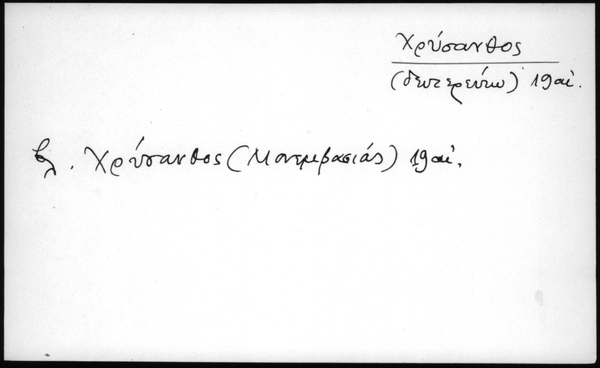 Χρύσανθος
(δευτερεύων) 19 αἰ.
βλ. Χρύσανθος (Μονεμβασιάς) 19 αἰ.